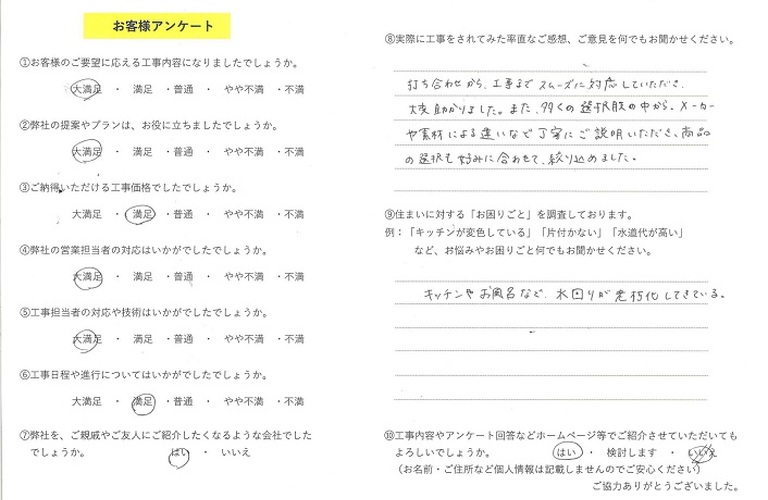 お客様アンケート
①お客様のご要望に応える工事内容になりましたでしょうか。
大満足 ・ 満足 ・普通 ・ やや不満 ・不満
②弊社の提案やプランは、お役に立ちましたでしょうか。
大満足 ・ 満足 ・普通 ・ やや不満 ・不満
③ご納得いただける工事価格でしたでしょうか。
大満足 ・ 満足 ・普通 ・ やや不満 ・不満
④弊社の営業担当者の対応はいかがでしたでしょうか。
大満足 ・ 満足 ・普通 ・ やや不満 ・不満
⑤工事担当者の対応や技術はいかがでしたでしょうか。
大満足 ・ 満足 ・普通 ・ やや不満 ・不満
⑥工事日程や進行についてはいかがでしたでしょうか。
大満足 ・ 満足 ・普通 ・ やや不満 ・不満
⑦弊社を、ご親戚やご友人にご紹介したくなるような会社でした
でしょうか。 はい ・ いいえ
⑧実際に工事をされてみた率直なご感想、ご意見を何でもお聞かせください。
打ち合わせから、工事までスムーズに対応していただき、
大変助かりました。また、多くの選択肢の中から、メーカー
や素材による違いなど丁寧にご説明いただき、商品
の選択も好みに合わせて、絞り込めました。
⑨住まいに対する「お困りごと」を調査しております。
例：「キッチンが変色している」「片付かない」「水道代が高い」
など、お悩みやお困りごと何でもお聞かせください。
キッチンやお風呂など、水回りが老朽化してきている。
⑩工事内容やアンケート回答などホームページ等でご紹介させていただいても
よろしいでしょうか。 はい ・ 検討します ・ いいえ
（お名前・ご住所など個人情報は記載しませんのでご安心ください）
ご協力ありがとうございました。